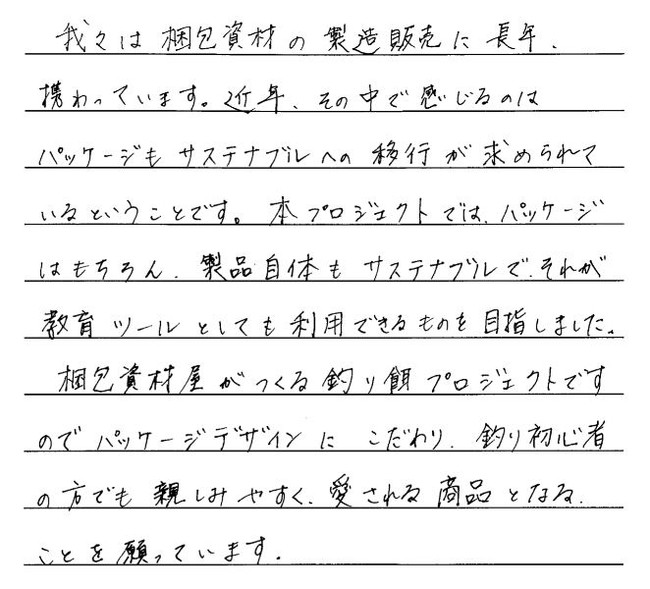 我々は梱包資材の製造販売に長年、
携わっています。近年、その中で感じるのは
パッケージもサステナブルへの移行が求められて
いるということです。本プロジェクトでは、パッケージ
はもちろん、製品自体もサステナブルで、それが
教育ツールとしても利用できるものを目指しました。
梱包資材屋がつくる釣り餌プロジェクトです
のでパッケージデザインにこだわり、釣り初心者
の方でも親しみやすく、愛される商品となる、
ことを願っています。